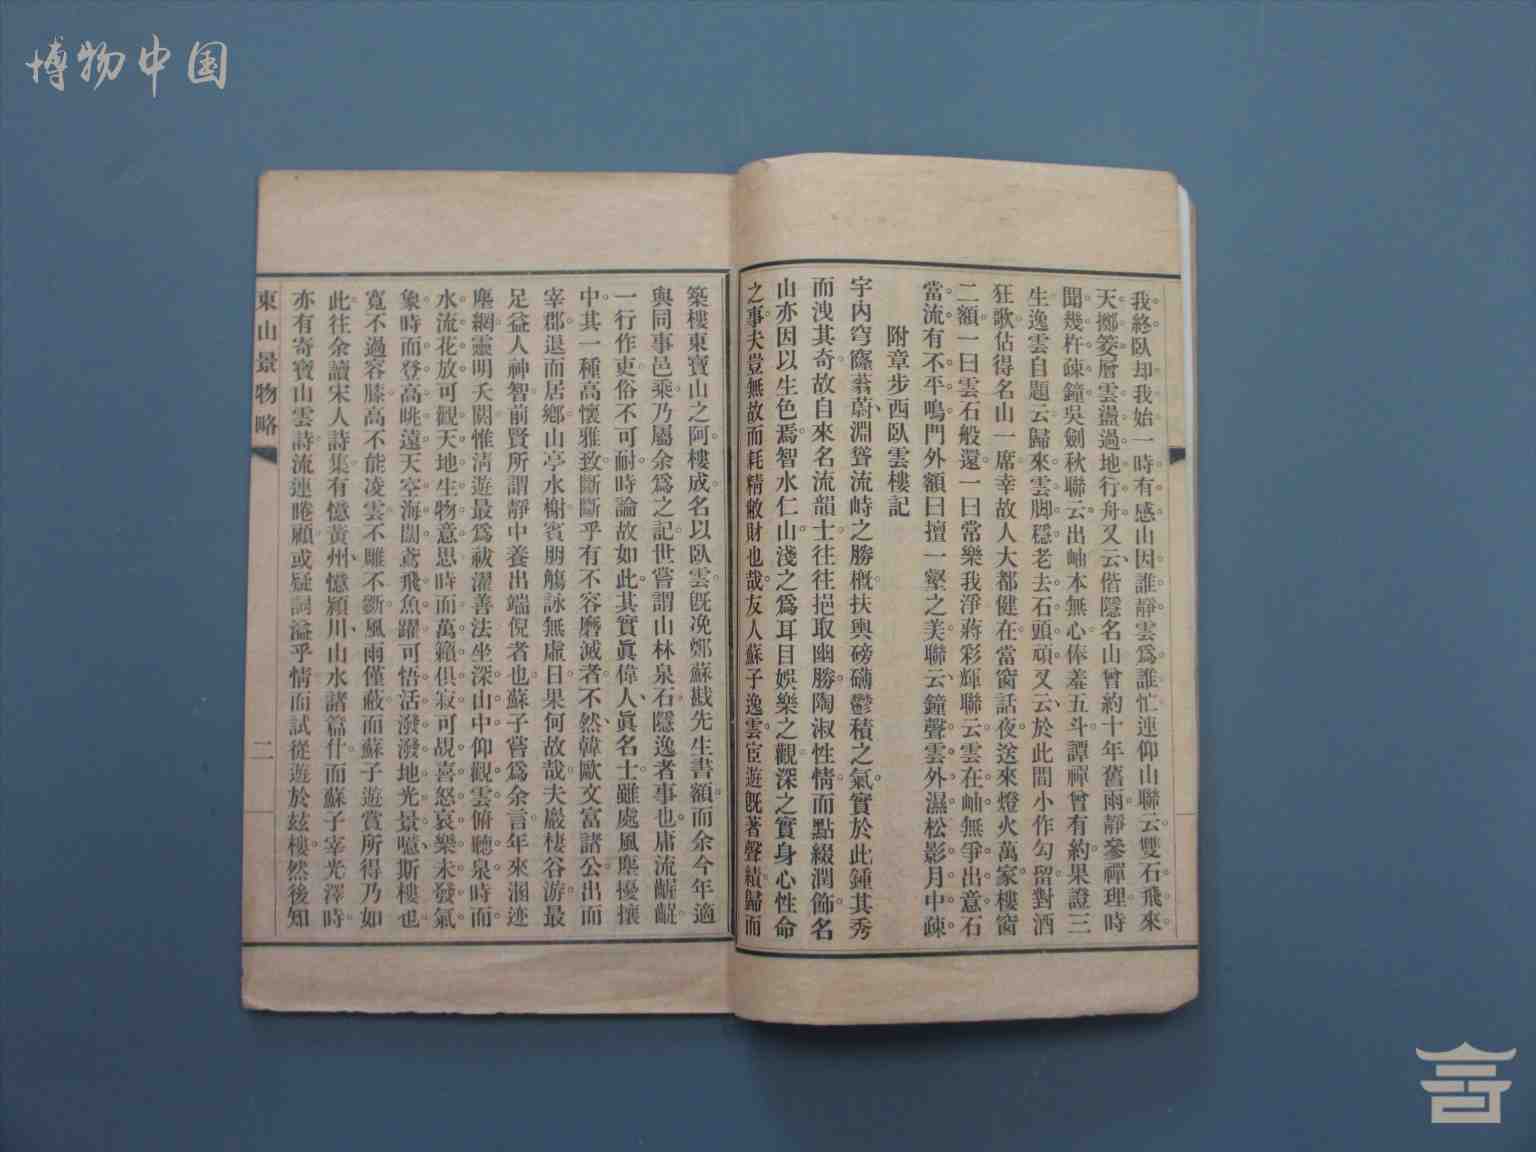 博物中国
我終臥却我始一時有感山因誰靜雲爲誰忙連仰山聯云雙石飛來
天擲筊層雲盪過地行舟又云偕隱名山曾約十年舊雨靜參禪理時
聞幾杵疎鐘吳劍秋聯云出岫本無心俸羞五斗譚禪曾有約果證三
生逸雲自題云歸來雲脚穩老去石頭頑又云於此間小作勾留對酒
狂歌估得名山一席幸故人大都健在當窗話夜送來燈火萬家樓窗
二額一曰雲石般還一曰常樂我淨蔣彩輝聯云雲在岫無爭出意石
當流有不平鳴門外額曰擅一壑之美聯云鐘聲雲外濕松影月中疎
附章步西臥雲樓記
宇內穹窿蓊蔚淵聳流峙之勝概扶輿磅礴鬱積之氣實於此鍾其秀
而洩其奇故自來名流韻士往往挹取幽勝陶淑性情而點綴潤飾名
山亦因以生色焉智水仁山淺之爲耳目娛樂之觀深之實身心性命
之事夫豈無故而耗精敝財也哉友人蘇子逸雲宦遊旣著聲績歸而
築樓東寶山之阿樓成名以臥雲旣浼鄭蘇戡先生書額而余今年適
與同事邑乘乃屬余爲之記世嘗謂山林泉石隱逸者事也庸流齷齪
一行作吏俗不可耐時論故如此其實眞偉人眞名士雖處風塵擾攘
中其一種高懷雅致斷斷乎有不容磨滅者不然韓歐文富諸公出而
宰郡退而居鄉山亭水榭賓朋觴詠無虛日果何故哉夫巖棲谷游最
足益人神智前賢所謂靜中養出端倪者也蘇子嘗爲余言年來溷迹
塵網靈明夭閼惟淸遊最爲祓濯善法坐深山中仰觀雲俯聽泉時而
水流花放可觀天地生物意思時而萬籟俱寂可覘喜怒哀樂未發氣
象時而登高眺遠天空海闊鳶飛魚躍可悟活潑潑地光景噫斯樓也
寬不過容膝高不能凌雲不雕不斲風雨僅蔽而蘇子遊賞所得乃如
此往余讀宋人詩集有憶黃州憶潁川山水諸篇什而蘇子宰光澤時
亦有寄寶山雲詩流連睠顧或疑詞溢乎情而試從遊於玆樓然後知
東山景物略
二